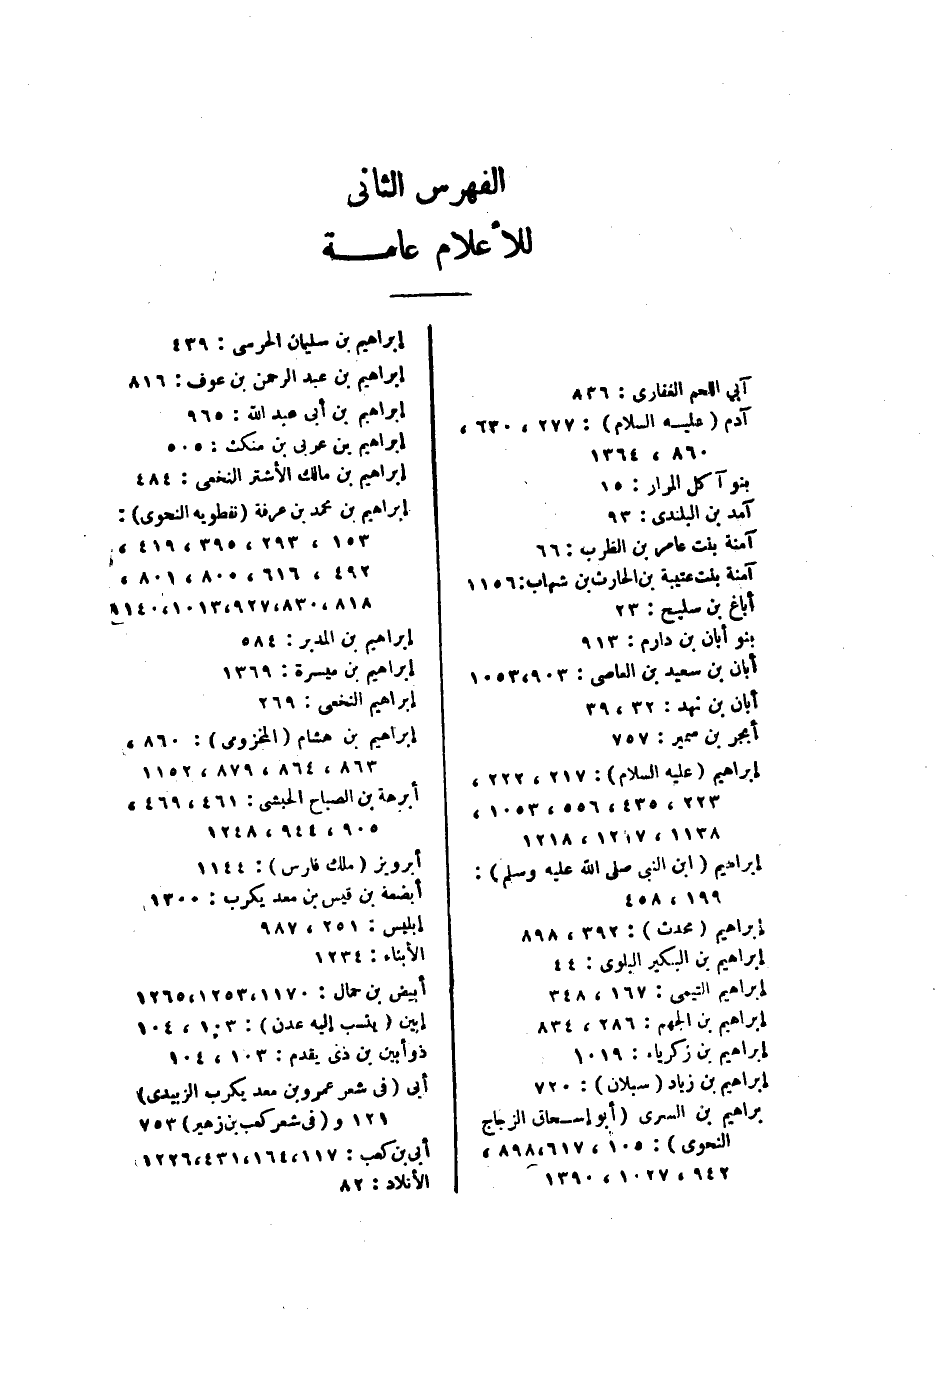 الفهرس الثانى
للأعلام عامـــة
آبي اللحم الغفارى : ٨٣٦
آدم ( عليـه السلام ) : ٢٧٧ ، ٦٣٠ ،
٨٦٠ ، ١٣٦٤
بنو آكل المرار : ١٥
آمد بن البلندى : ٩٣
آمنة بنت عامر بن الظرب : ٦٦
آمنة بنت عتيبة بن الحارث بن شهاب : ١١٥٦
أباغ بن سليح : ٢٣
بنو أبان بن دارم : ٩١٣
أبان بن سعيد بن العاصى : ٩٠٣ ، ١٠٥٣
أبان بن نهد : ٣٢ ، ٣٩
أبجر بن سمير : ٧٥٧
إبراهيم ( عليه السلام ) : ٢١٧ ، ٢٢٢ ،
٢٢٣ ، ٤٣٥ ، ٥٥٦ ، ١٠٥٣ ،
١١٣٨ ، ١٢١٧ ، ١٢١٨
إبراهيم ( ابن النبى صلى الله عليه وسلم ) :
١٩٩ ، ٤٥٨
إبراهيم ( محدث ) : ٣٩٢ ، ٨٩٨
إبراهيم بن البكير البلوى : ٤٤
إبراهيم التيمى : ١٦٧ ، ٣٤٨
إبراهيم بن الجهم : ٢٨٦ ، ٨٣٤
إبراهيم بن زكرياء : ١٠١٩
إبراهيم بن زياد ( سبلان ) : ٧٢٠
براهيم بن السرى ( أبو إسـحاق الزجاج
النحوى ) : ١٠٥ ، ٦١٧ ، ٨٩٨ ،
٩٤٢ ، ١٠٢٧ ، ١٣٩٠
إبراهيم بن سليمان الحرسى : ٤٣٩
إبراهيم بن عبد الرحمن بن عوف : ٨١٦
إبراهيم بن أبى عبد الله : ٩٦٥
إبراهيم بن عربى بن منكث : ٥٠٥
إبراهيم بن مالك الأشتر النخعى : ٤٨٤
إبراهيم بن محمد بن عرفة ( نفطويه النحوى ) :
١٥٣ ، ٢٩٣ ، ٣٩٥ ، ٤١٩ ،
٤٩٢ ، ٦١٦ ، ٨٠٠ ، ٨٠١ ،
٨١٨ ، ٨٣٠ ، ٩٢٧ ، ١٠١٣ ،
إبراهيم بن المدبر : ٥٨٤
إبراهيم بن ميسرة : ١٣٦٩
إبراهيم النخعى : ٢٦٩
إبراهيم بن هشام ( المخزومى ) : ٨٦٠ ،
٨٦٣ ، ٨٦٤ ، ٨٧٩ ، ١١٥٢
أبرهة بن الصباح الحبشى : ٤٦١ ، ٤٦٩ ،
٩٠٥ ، ٩٤٤ ، ١٢٤٨
أبرويز ( ملك فارس ) : ١١٤٤
أبضعة بن قيس بن معد يكرب : ١٣٠٠
إبليس : ٢٥١ ، ٩٨٧
الأبناء : ١٢٣٤
أبيض بن حمال : ١١٧٠ ، ١٢٥٣ ، ١٢٦٥
إبين ( ينسب إليه عدن ) : ١٠٣ ، ١٠٤
ذو أبين بن ذى يقدم : ١٠٣ ، ١٠٤
أبى ( فى شعر عمرو بن معد يكرب الزبيدى )
١٢١ و ( فى شعر كعب بن زهير ) ٧٥٣
أبى بن كعب : ١١٧ ، ١٦٤ ، ٤٣١ ، ١٢٢٦
الأتلاد : ٨٢